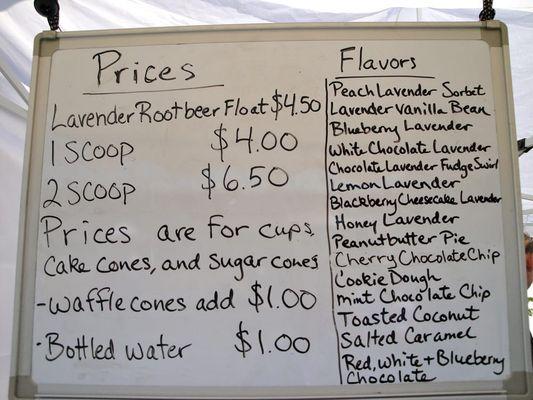 Prices
Lavender Rootbeer Float $4.50
1 SCOOP $4.00
2 SCOOP $6.50
Prices are for cups,
Cake cones, and Sugar cones
- Waffle cones add $1.00
· Bottled Water $1.00
Flavors
Peach Lavender Sorbet
Lavender Vanilla Bean
Blueberry Lavender
White Chocolate Lavender
Chocolate Lavender Fudge Swirl
Lemon Lavender
Blackberry Cheesecake Lavender
Honey Lavender
Peanutbutter Pie
Cherry Chocolate Chip
Cookie Dough
Mint Chocolate Chip
Toasted Coconut
Salted Caramel
Red, White + Blueberry
Chocolate